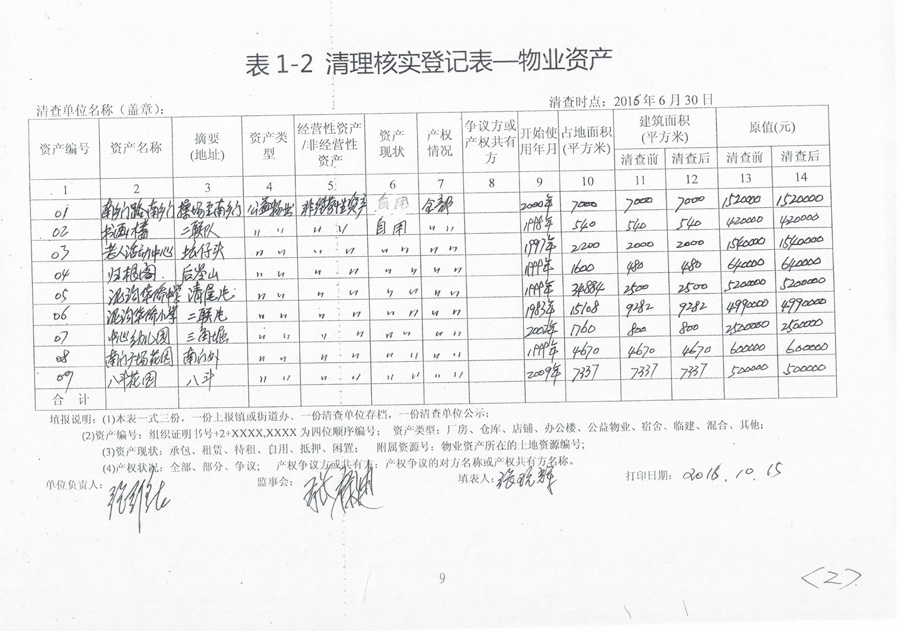 表 1-2 清理核实登记表—物业资产
清查单位名称（盖章）： 清查时点：2016年6月30日
资产编号 资产名称 摘要(地址) 资产类型 经营性资产/非经营性资产 资产现状 产权情况 争议方或产权共有方 开始使用年月 占地面积(平方米) 建筑面积(平方米) 原值(元)
清查前 清查后 清查前 清查后
1 2 3 4 5 6 7 8 9 10 11 12 13 14
01 南门路南乡门 公益物业 非经营性资产 自用 全部 2000年 7000 7000 7000 1520000 1520000
02 二联队 〃 〃 〃 〃 自用 〃 〃 1998年 540 540 540 420000 420000
03 老人活动中心 〃 〃 〃 〃 〃 〃 〃 〃 1997年 2200 2000 2000 1540000 1540000
04 归根阁 后堂山 〃 〃 〃 〃 〃 〃 〃 〃 1999年 1600 480 480 640000 640000
05 华侨中学 清尾 〃 〃 〃 〃 〃 〃 〃 〃 1999年 34884 2500 2500 5200000 5200000
06 华侨小学 二联 〃 〃 〃 〃 〃 〃 〃 〃 1983年 15108 9282 9282 4990000 4990000
07 中心幼儿园 三角堀 〃 〃 〃 〃 〃 〃 〃 〃 2002年 1760 800 800 2500000 2500000
08 南门广场花园 南门外 〃 〃 〃 〃 〃 〃 〃 〃 1999年 4670 4670 4670 600000 600000
09 八斗花园 八斗 〃 〃 〃 〃 〃 〃 〃 〃 2009年 7337 7337 7337 500000 500000
合 计
填报说明：(1)本表一式三份，一份上报镇或街道办、一份清查单位存档，一份清查单位公示；
(2)资产编号：组织证明书号+2+XXXX,XXXX 为四位顺序编号； 资产类型：厂房、仓库、店铺、办公楼、公益物业、宿舍、临建、混合、其他；
(3)资产现状：承包、租赁、待租、自用、抵押、闲置； 附属资源号：物业资产所在的土地资源编号；
(4)产权状况：全部、部分、争议； 产权争议方或共有方：产权争议的对方名称或产权共有方名称。
单位负责人： 监事会： 填表人： 打印日期： 2016.10.15
9
<2>